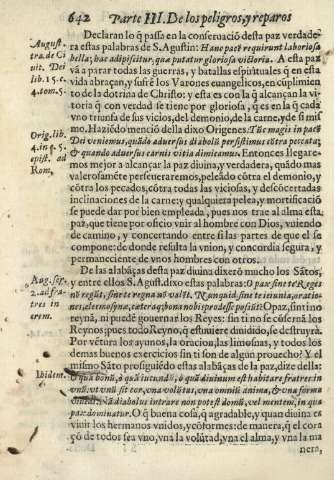 642 Parte III. De los peligros, y reparos
Declaran lo q̃ passa en la conseruaciõ desta paz verdade
ra estas palabras de S. Agustin: Hanc pacẽ requirunt laboriosa
bella; hac adipiscitur, qua putatur gloriosa victoria. A esta paz
vã a parar todas las guerras, y batallas espirituales q̃ en esta
vida abraçan, y sufrẽ los Varones euangelicos, en cumplimiẽ
to de la dotrina de Christo: y esta es con la q̃ alcançan la vi
toria q̃ con verdad se tiene por gloriosa, q̃ es en la q̃ cada
vno triunfa de sus vicios, del demonio, de la carne, y de si mis
mo. Haziẽdo menciõ della dixo Origenes. Tũc magis in pacẽ
Dei veniemus, quãdo aduersus diaboli persistimus cõtra peccata;
& quando aduersus carnis vitia dimicamus. Entonces llegare
mos mejor a alcançar la paz diuina, y verdadera, quãdo mas
valerosamẽte perseueraremos, peleãdo cõtra el demonio, y
cõtra los pecados, cõtra todas las viciosas, y descõcertadas
inclinaciones de la carne; y qualquiera pelea, y mortificaciõ
se puede dar por bien empleada, pues nos trae al alma esta
paz, que tiene por oficio vnir al hombre con Dios, vniendo
de camino, y concertando entre si las partes de que el se
compone: de donde resulta la vnion, y concordia segura, y
permaneciente de vnos hombres con otros.
De las alabãças desta paz diuina dixerõ mucho los Sãtos,
y entre ellos S. Agust. dixo estas palabras: O pax sine te Reges
nõ regũt, sine te regna nõ valẽt. Nunquid, sine te ieiunia, oratio-
nes, eleemosynæ, cæteraq; bona nobis prodesse possũt? O paz, sin ti no
reynã, ni puedẽ gouernar los Reyes: sin ti no se cõseruã los
Reynos; pues todo Reyno, q̃ estuuiere diuidido, se destruyrà.
Por vẽtura los ayunos, la oracion, las limosnas, y todos los
demas buenos exercicios sin ti son de algun prouecho? Y el
mismo Sãto prosiguiẽdo estas alabãças de la paz, dize della:
O quã bonũ, ò quã iucundũ, ò quã diuinum est habitare fratres in
vnũ, vt vnũ sit cor, vna volũtas, vna omniũ anima, & vna forma
viuẽdi, vnã diabolus intrare non potest domũ, vel mentem, in qua
pax dominatur. O q̃ buena cosa, q̃ agradable, y quan diuina es
viuir los hermanos vnidos, y cõformes: de manera, q̃ el cora
çõ de todos sea vno, vna la volũtad, vna el alma, y vna la ma
nera,
August.
tra. de Ci
uit. Dei
lib. 15. c.
4. tom. 5.
Orig. lib.
4. in c. 5.
epist. ad
Rom,
Aug. ser.
2. ad fra-
tres in
erem.
Ibidem.